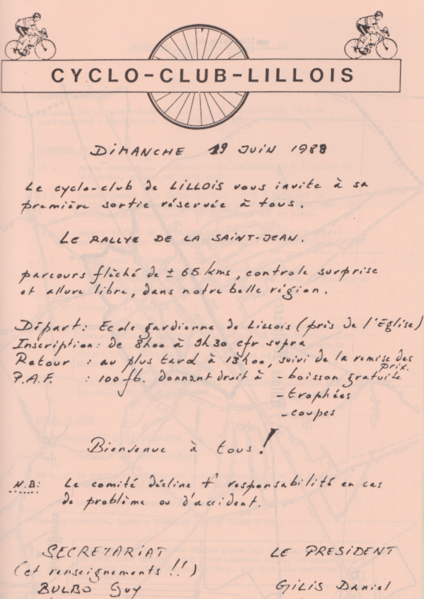 CYCLO-CLUB-LILLOIS
DIMANCHE 19 JUIN 1988
Le cyclo-club de LILLOIS vous invite à sa
première sortie réservée à tous.
LE RALLYE DE LA SAINT-JEAN.
parcours fléché de ± 65 kms, controle surprise
et allure libre, dans notre belle région.
Départ: Ecole gardienne de Lillois (près de l'Eglise)
Inscription: de 8h00 à 9h30 cfr supra
Retour : au plus tard à 13h00, suivi de la remise des
prix.
P.A.F. : 100 fb. donnant droit à - boisson gratuite
- trophées
- coupes
Bienvenue à tous!
N.B: Le comité décline responsabilité en cas
de problème ou d'accident.
SECRETARIAT LE PRESIDENT
(et renseignements !!)
BULBO Guy GILIS Daniel